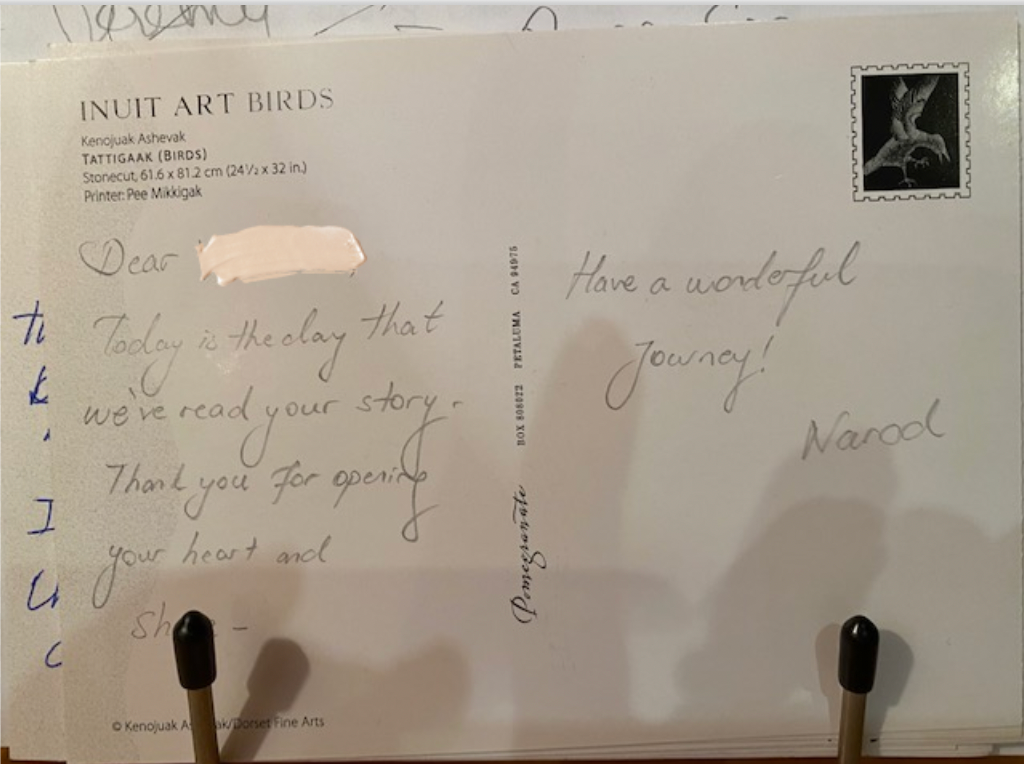 INUIT ART BIRDS
Kenojuak Ashevak
TATTIGAAK (BIRDS)
Stonecut, 61.6 x 81.2 cm (24½ x 32 in.)
Printer: Pee Mikkigak
Dear
Today is the day that
we've read your story -
Thank you for opening
your heart and
Sh
© Kenojuak As ak/Dorset Fine Arts
Pomegranate BOX 808022 PETALUMA CA 94975
Have a wonderful
Journey!
Narod